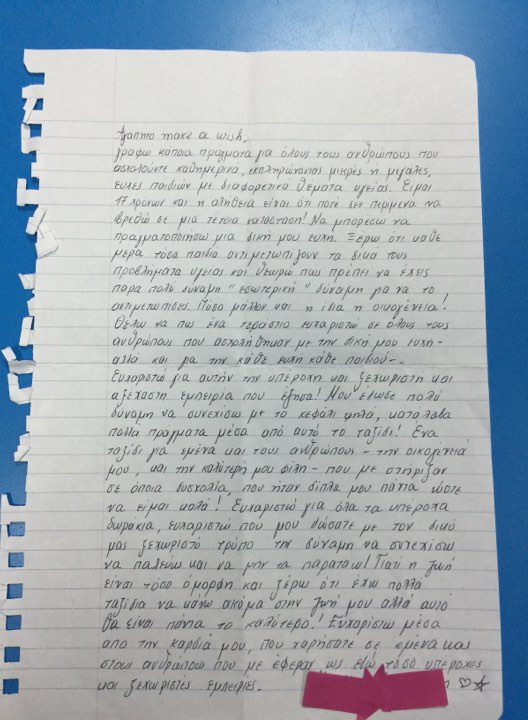 Αγαπητό make a wish,
γράφω κάποια πράγματα για όλους τους ανθρώπους που
ασχολούντε καθημερινά, εκπληρώνοντας μικρές η μεγάλες,
ευχές παιδιών με διαφορετικά θέματα υγείας. Είμαι
17 χρονών και η αλήθεια είναι ότι ποτέ δεν περίμενα να
βρεθώ σε μια τέτοια κατάσταση! Να μπορέσω να
πραγματοποιήσω μια δική μου ευχή. Ξέρω ότι κάθε
μέρα τόσα παιδιά αντιμετωπίζουν τα δικά τους
προβλήματα υγείας και θεωρώ πως πρέπει να έχεις
πάρα πολύ δύναμη "εσωτερική" δύναμη για να το
αντιμετωπίσεις. Πόσο μάλλον και η ίδια η οικογένεια!
Θέλω να πω ένα τεράστιο ευχαριστώ σε όλους τους
ανθρώπους που ασχολήθηκαν με την δική μου ευχή-
αλλά και για την κάθε ευχή κάθε παιδιού-.
Ευχαριστώ για αυτήν την υπέροχη και ξεχωριστή και
αξέχαστη εμπειρία που έζησα! Μου έδωσε πολύ
δύναμη να συνεχίσω με το κεφάλι ψηλά, κατάλαβα
πολλά πράγματα μέσα από αυτό το ταξίδι! Ένα
ταξίδι για εμένα και τους ανθρώπους - την οικογένειά
μου, και την καλύτερή μου φίλη - που με στήριξαν
σε όποια δυσκολία, που ήταν δίπλα μου πάντα ώστε
να είμαι καλά! Ευχαριστώ για όλα τα υπέροχα
δωράκια, ευχαριστώ που μου δώσατε με τον δικό
μας ξεχωριστό τρόπο την δύναμη να συνεχίσω
να παλεύω και να μην τα παρατάω! Γιατί η ζωή
είναι τόσο όμορφη και ξέρω ότι έχω πολλά
ταξίδια να κάνω ακόμα στην ζωή μου αλλά αυτό
θα είναι πάντα το καλύτερο! Ευχαριστώ μέσα
από την καρδιά μου, που χαρήσατε σε εμένα και
στους ανθρώπους που με έφεραν ως εδώ τόσο υπέροχες
και ξεχωριστές εμπειρίες.